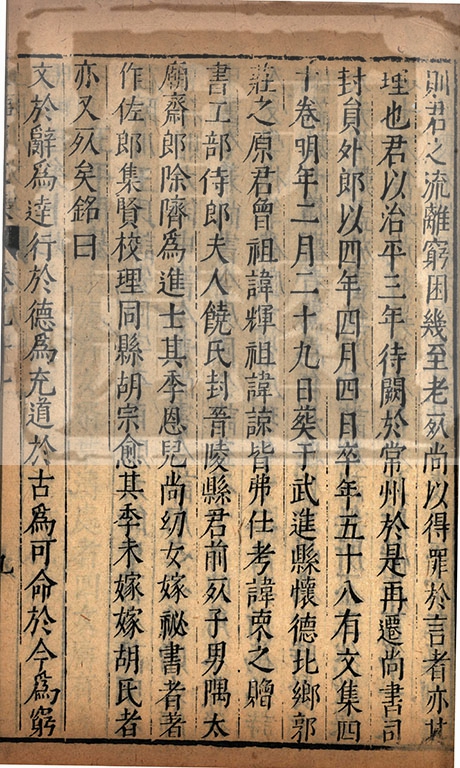 則君之流離窮困幾至老死尚以得罪於言者亦其
理也君以治平三年待闕於常州於是再遷尚書司
封員外郎以四年四月四日卒年五十八有文集四
十卷明年二月二十九日葬于武進縣懷德北鄉郭
莊之原君曾祖諱輝祖諱諒皆弗仕考諱柬之贈尚
書工部侍郎夫人饒氏封晉陵縣君前死子男隅太
廟齋郎除隮為進士其季恩兒尚幼女嫁祕書省著
作佐郎集賢校理同縣胡宗愈其季未嫁嫁胡氏者
亦又死矣銘曰
文於辭為達行於德為充道於古為可命於今為窮
九